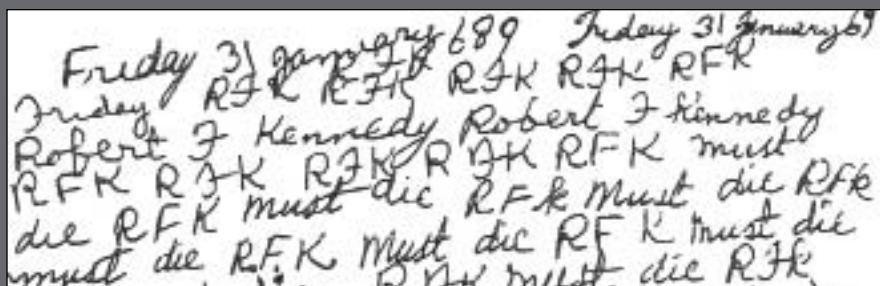 Friday 31 January 689 Friday 31 January 69
Friday RFK RFK RFK RFK RFK RFK
Robert F Kennedy Robert F Kennedy
RFK RFK RFK R FK RFK must
die RFK must die RFK must die RFK
must die R.F.K must die RF K must die
RFK must die RFK